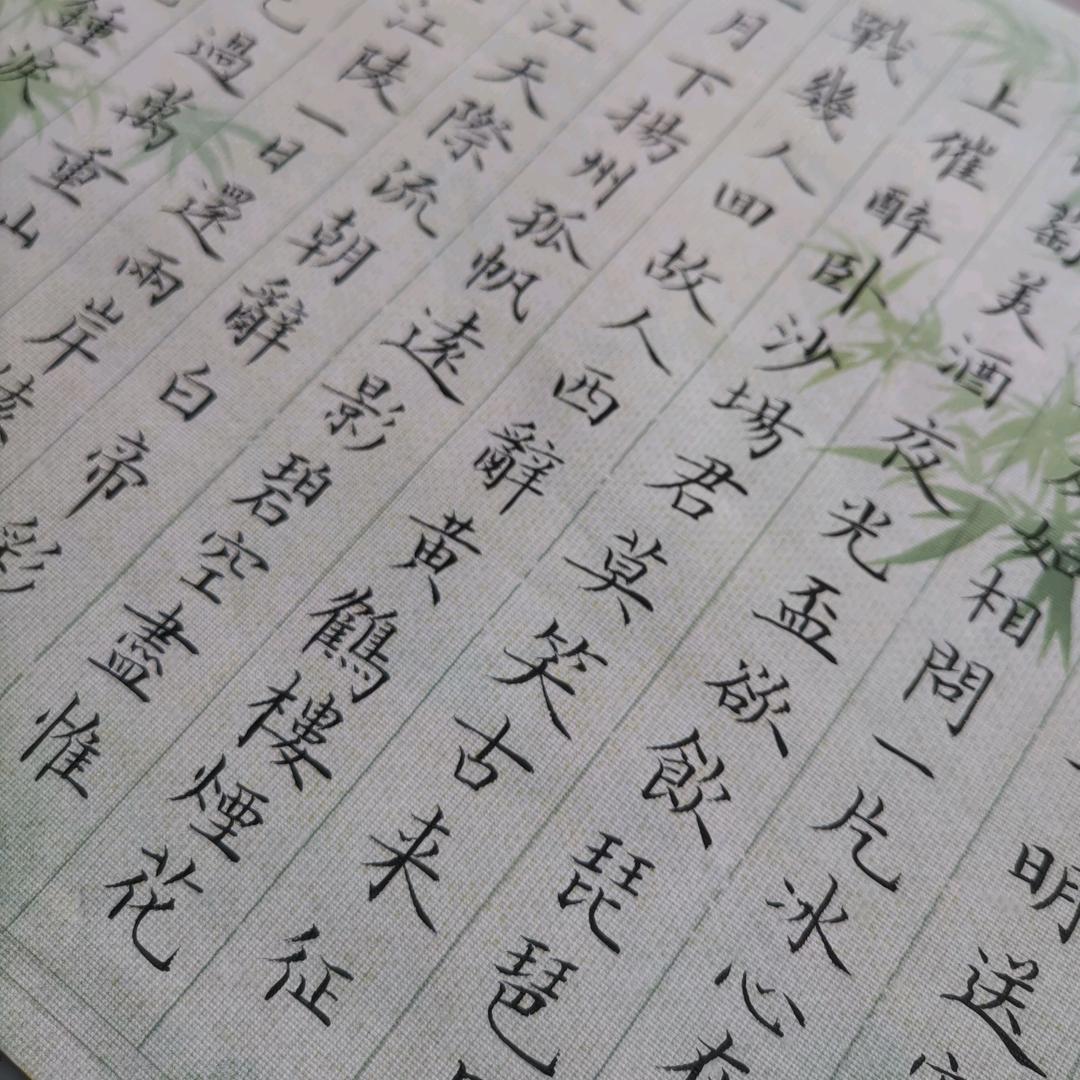 明送
如相問一片冰心在
萄美酒夜光盃欲飲琵琶
上催醉卧沙場君莫笑古来征
戰幾人回故人西辭黄鶴樓煙花
月下揚州孤帆遠影碧空盡惟
江天際流朝辭白帝彩
江陵一日還兩岸猿
過萬重山
鍾